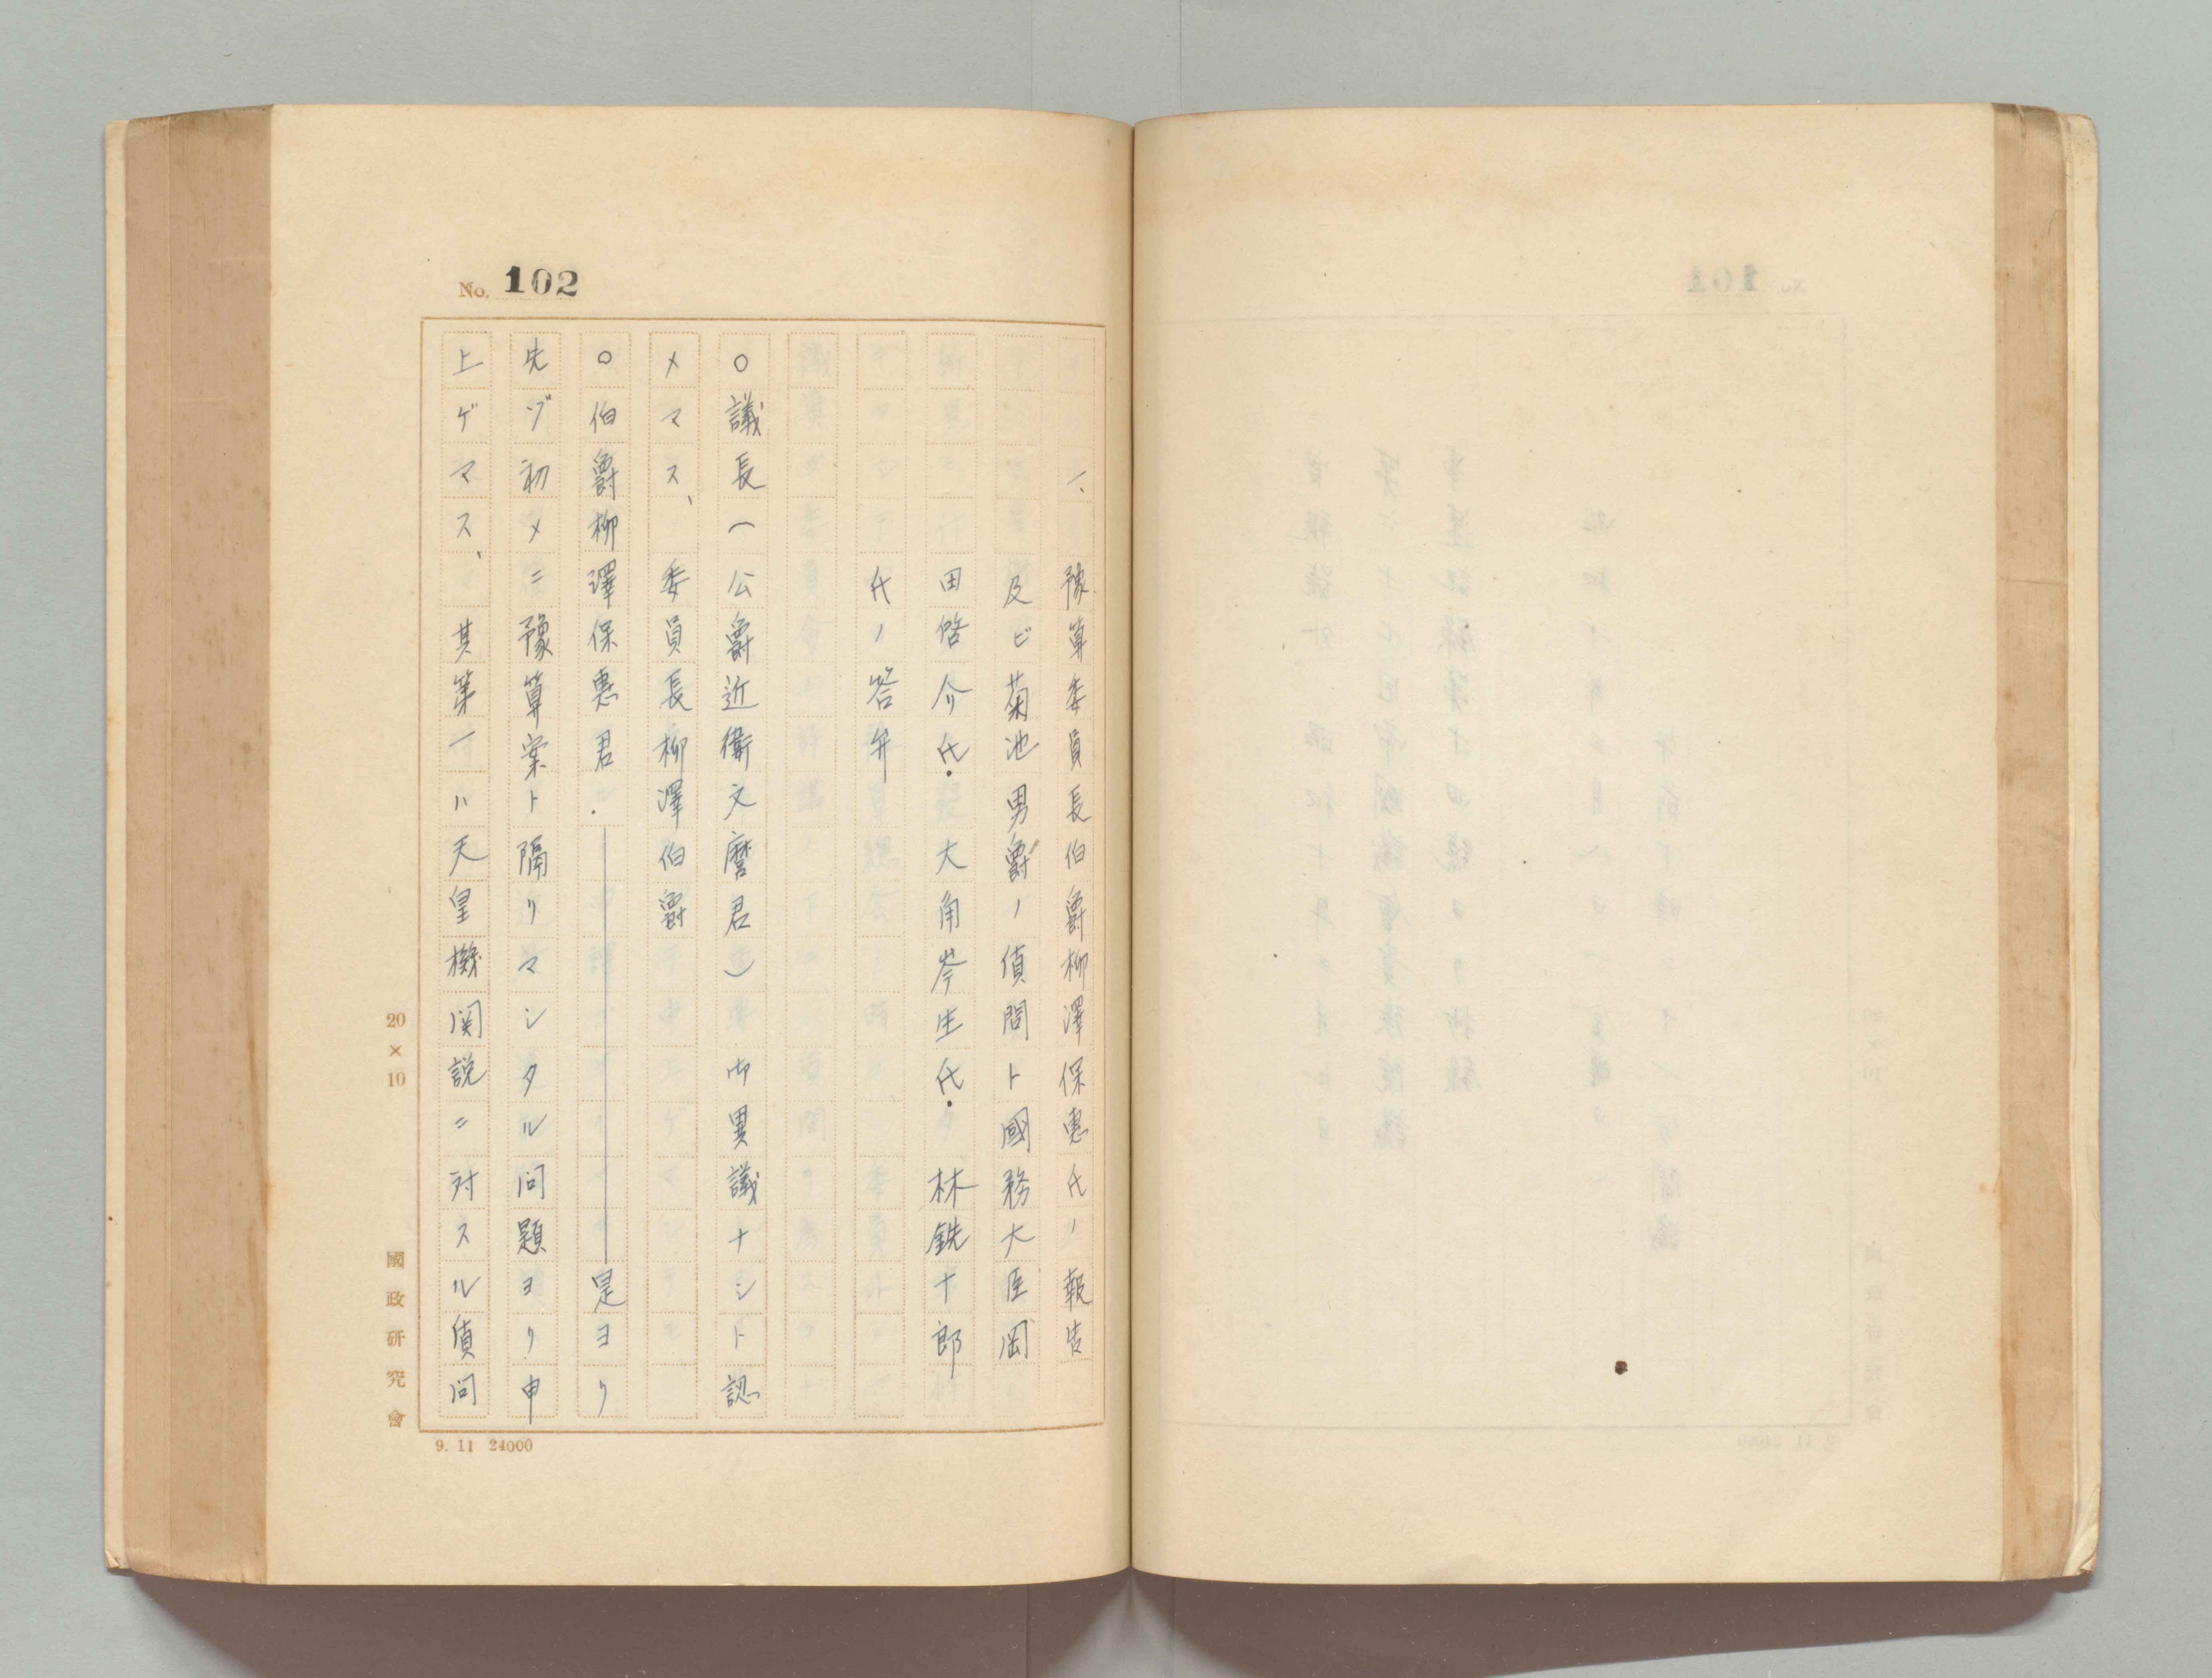 No. 102
一、豫算委員長伯爵柳澤保惠氏ノ報告
及ビ菊池男爵ノ質問ト國務大臣岡
田啓介氏・大角岑生氏・林銑十郎
氏ノ答弁
○議長(公爵近衞文麿君)御異議ナシト認
メマス、委員長柳澤伯爵
○伯爵柳澤保惠君.———是ヨリ
先ヅ初メニ豫算案ト隔リマシタル問題ヨリ申
上ゲマス、其第一ハ天皇機関説ニ対スル質問
20×10
國政研究會
9. 11 24000